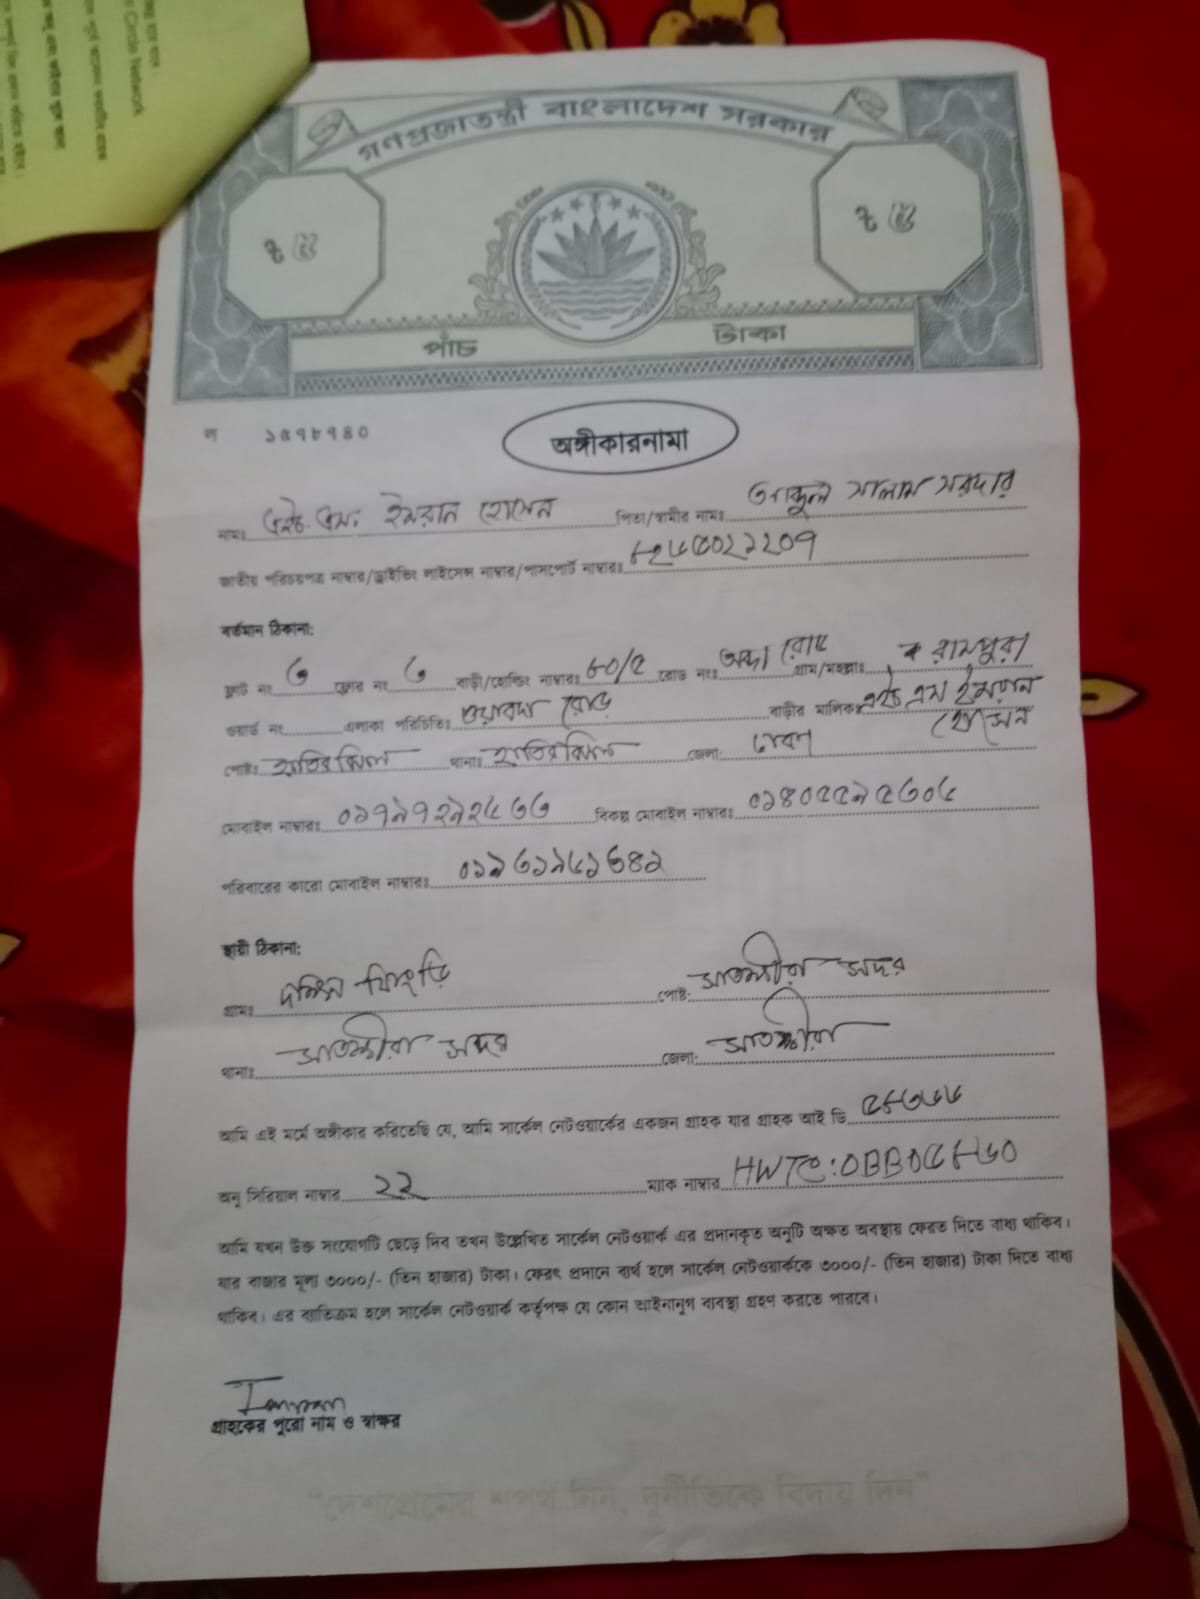 Circle Network
গণপ্রজাতন্ত্রী বাংলাদেশ সরকার
৳ ৫ ৳ ৫
পাঁচ টাকা
ল ১৫৭৮৭৪০
অঙ্গীকারনামা
নামঃ এইচ. এম. ইমরান হোসেন পিতা/স্বামীর নামঃ আব্দুল সালাম সরদার
জাতীয় পরিচয়পত্র নাম্বার/ড্রাইভিং লাইসেন্স নাম্বার/পাসপোর্ট নাম্বারঃ ৮২৬৫০২১২০৭
বর্তমান ঠিকানা:
ফ্লাট নং ৩ ফ্লোর নং ৩ বাড়ী/হোল্ডিং নাম্বারঃ ৮০/৫ রোড নংঃ রোড গ্রাম/মহল্লাঃ রামপুরা
ওয়ার্ড নং এলাকা পরিচিতিঃ ওয়াবদা রোড বাড়ীর মালিকঃ এইচ এম ইমরান হোসেন
পোষ্টঃ হাতিরঝিল থানাঃ হাতিরঝিল জেলা: ঢাকা
মোবাইল নাম্বারঃ ০১৭৯৭২৯২৬৩৩ বিকল্প মোবাইল নাম্বারঃ
পরিবারের কারো মোবাইল নাম্বারঃ ০১৯৩১৯৬১৩৪২
স্থায়ী ঠিকানা:
গ্রামঃ দক্ষিন ফিংড়ি পোষ্ট: সাতক্ষীরা সদর
থানাঃ সাতক্ষীরা সদর জেলা: সাতক্ষীরা
আমি এই মর্মে অঙ্গীকার করিতেছি যে, আমি সার্কেল নেটওয়ার্কের একজন গ্রাহক যার গ্রাহক আই ডি ৫৮৩৬৬
অনু সিরিয়াল নাম্বার ২২ ম্যাক নাম্বার
আমি যখন উক্ত সংযোগটি ছেড়ে দিব তখন উল্লেখিত সার্কেল নেটওয়ার্ক এর প্রদানকৃত অনুটি অক্ষত অবস্থায় ফেরত দিতে বাধ্য থাকিব।
যার বাজার মূল্য ৩০০০/- (তিন হাজার) টাকা। ফেরৎ প্রদানে ব্যর্থ হলে সার্কেল নেটওয়ার্ককে ৩০০০/- (তিন হাজার) টাকা দিতে বাধ্য
থাকিব। এর ব্যতিক্রম হলে সার্কেল নেটওয়ার্ক কর্তৃপক্ষ যে কোন আইনানুগ ব্যবস্থা গ্রহণ করতে পারবে।
Imran
গ্রাহকের পুরো নাম ও স্বাক্ষর
"দেশপ্রেমের শপথ নিন, দুর্নীতিকে বিদায় দিন"